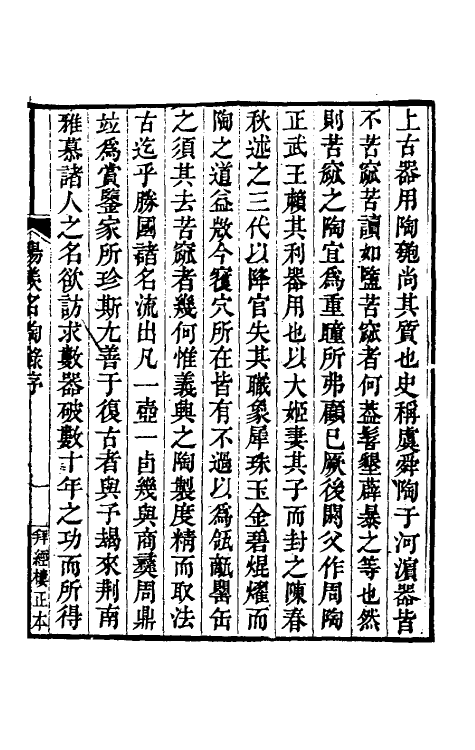 上古器用陶匏尚其質也史稱虞舜陶于河濱器皆
不苦窳苦讀如鹽苦窳者何蓋髻墾薜暴之等也然
則苦窳之陶宜爲重瞳所弗顧已厥後閼父作周陶
正武王賴其利器用也以大姬妻其子而封之陳春
秋述之三代以降官失其職象犀珠玉金碧焜燿而
陶之道益敝今覆穴所在皆有不過以爲瓴甋罌缶
之須其去苦窳者幾何惟義興之陶製度精而取法
古迄乎勝國諸名流出凡一壺一卣幾與商彝周鼎
竝爲賞鑒家所珍斯尤善于復古者與予朅來荆南
雅慕諸人之名欲訪求數器破數十年之功而所得
陽羨名陶錄序
一
拜經樓正本